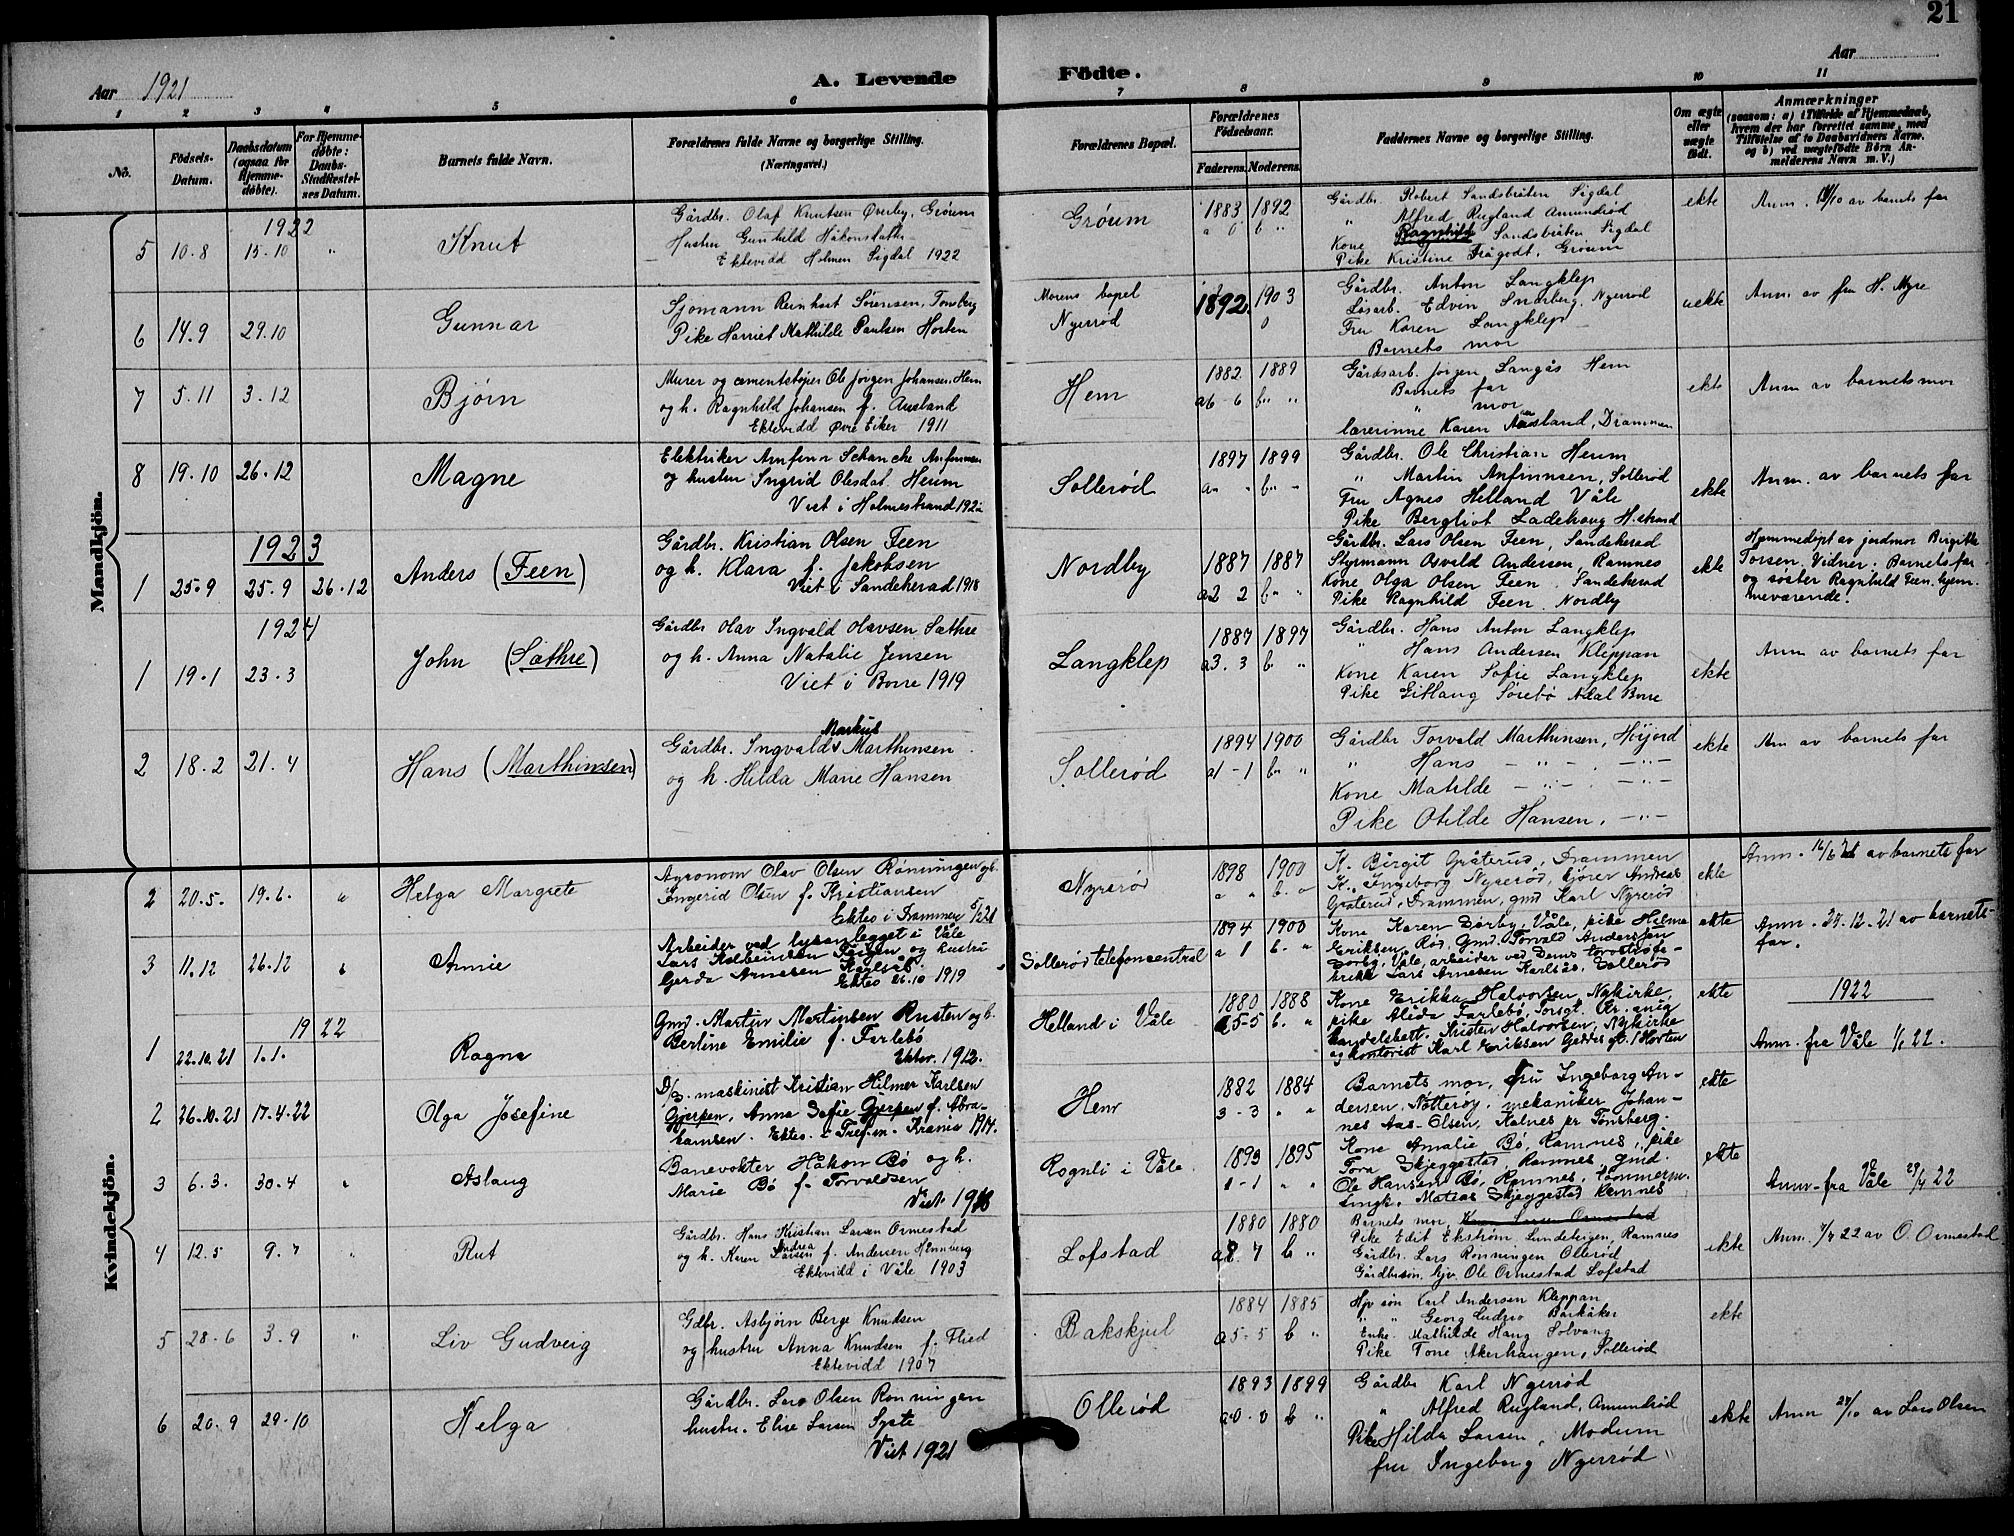 21
Aar 1921
A. Levende
Födte.
Aar
1 2 3 4 5 6 7 8 9 10 11
No.
Födsels-Datum.
Daabsdatum (ogsaa for Hjemme-döbte).
For Hjemme-döbte: Daabs-Stadfæstel-ses Datum.
Barnets fulde Navn.
Forældrenes fulde Navne og borgerlige Stilling.
(Næringsvei.)
Forældrenes Bopæl.
Forældrenes Födselsaar.
Faderens. Moderens.
Faddernes Navne og borgerlige Stilling.
Om ægte eller uægte födt.
Anmærkninger
(saasom: a) i Tilfælde af Hjemmedaab, hvem der har forrettet samme, med Tilföielse af to Daabsvidners Navne. og b) ved uægtefödte Börn Anmelderens Navn m. V.)
Mandkjön.
1922
5 10.8 15.10 " Knut
Gårdbr. Olaf Knutsen Øverby, Grøum
Hustru Gunhild Håkonsdatter
Ektevidd Holmen Sigdal 1922
Grøum
1883 1892
Gårdbr. Robert Sandsbråten Sigdal
" Alfred Rugland Amundrød
Kone Ragnhild Sandsbråten Sigdal
Pike Kristine Frågodt, Grøum
ekte
Anm. av barnets far
6 14.9 29.10 Gunnar
Sjømann Reinhart Sørensen, Tønsberg
Pike Harriet Mathilde Paulsen Horten
Morens bopel
Nyerrød
1892 1903
Gårdbr. Anton Langklep
Løsarb. Edvin Snarberg, Nyerrød
Fru Karen Langklep
Barnets mor
uekte
Anm. av fru H. Myre
7 5.11 3.12 Bjørn
Murer og cementstøper Ole Jørgen Johansen, Hem
og h. Ragnhild Johansen f. Ausland
Ektevidd Øvre Eiker 1911
Hem
1882 1889
Gårdsarb. Jørgen Langås Hem
Barnets far
" mor
lærerinne Karen Aasland, Drammen
ekte
Anm av barnets mor
8 19.10 26.12 Magne
Elektriker Arnfinn Schanche Anfinnsen
og hustru Ingrid Olesdat. Herum
Viet i Holmestrand
Sollerød
1897 1899
Gårdbr. Ole Christian Herum
" Martin Anfinnsen, Sollerød
Fru Agnes Helland Våle
Pike Bergliot Ladehaug H.strand
ekte
Anm. av barnets far
1923
1 25.9 25.9 26.12 Anders (Feen)
Gårdbr. Kristian Olsen Feen
og h. Klara f. Jakobsen
Viet i Sandeherad 1918
Nordby
1887 1887
Gårdbr. Lars Olsen Feen, Sandeherad
Styrmann Osvald Andersen, Ramnes
Kone Olga Olsen Feen, Sandeherad
Pike Ragnhild Feen, Nordby
ekte
Hjemmedøpt av jordmor Birgitte
Torsen. Vidner: Barnets far
og søster Ragnhild Feen, hjem-
meværende.
1924
1 19.1 23.3 John (Sæthre)
Gårdbr Olav Ingvald Olavsen Sæthre
og h. Anna Natalie Jensen
Viet i Borre 1919
Langklep
1887 1897
Gårdbr. Hans Anton Langklep
" Hans Andersen Kleppan
Kone Karen Sofie Langklep
Pike Gitlaug Sørebø Adal Borre
ekte
Anm av barnets far
2 18.2 21.4 Hans (Marthinsen)
Markus
Gårdbr. Ingvald Marthinsen
og h. Hilda Marie Hansen
Sollerød
1894 1900
Gårdbr Torvald Marthinsen, Hørjord
" Hans
Kone Matilde
Pike Otilde Hansen.
ekte
Anm av barnets far
Kvindekjön.
2 20.5. 19.6. " Helga Margrete
Agronom Olav Olsen Rønningen og h.
Ingerid Olsen f. Kristiansen
Ektev. i Drammen
Nyrerød
1898 1900
K. Birgit Gråterud, Drammen
K. Ingeborg Nyrerød, kjører Andreas
Gråterud, Drammen, gmd Karl Nyrerød
ekte
Anm. 16/6 21 av barnets far
3 11.12 26.12 " Annie
Arbeider ved lysanlegget i Våle
Lars Kolbeinsen Teigen og hustru
Gerda Arnesen Karlsås.
Ektev 26.10 1919
Sollerød telefoncentral
1894 1900
Kone Karen Dørby, Våle, pike Hilma
Eriksen, Rød, Gmd. Torvald Anderssen
Dørby, Våle, arbeider ved Dems torvstrøfa-
brikk Lars Arnesen Karlsås, Sollerød
ekte
Anm. 24.12.21 av barnets
far.
1922
1 22.10.21 1.1. Ragna
Gmd. Martin Martinsen Rusten og h.
Berline Emilie f. Farlebø
Ektev. 1912.
Helland i Våle
1880 1888
Kone Erikka Halvorsen, Nykirke,
pike Alida Farlebø, Torsgt. Kr.ania
handelsbett. Kristen Halvorsen, Nykirke
og kontorist Karl Eriksen Geddes gt. 1 Horten
ekte
1922
Anm. fra Våle 1/1 22.
2 26.10.21 17.4.22 Olga Josefine
D/s. maskinist Kristian Hilmer Karlsen
Gjerpen, Anna Sofie Gjerpen f. Abra-
hamsen. Ektev. i Tref.m. Krania 1914.
Hem
1882 1884
Barnets mor, fru Ingeborg An-
dersen, Nøtterøy, mekaniker Johan-
nes Aas-Olsen, Kalnes pr Tønsberg.
ekte
3 6.3. 30.4 " Aslaug
Banevokter Håkon Bø og h.
Marie Bø f. Torvaldsen
Viet 1918
Rognli i Våle
1893 1895
Kone Amalie Bø, Ramnes, pike
Tora Skjeggestad, Ramnes, gmd.
Ole Hansen Bø, Ramnes, tømmerm.
Matias Skjeggestad Ramnes
ekte
Anm. fra Våle 29/4 22
4 12.5 9.7 " Rut
Gårdbr. Hans Kristian Larsen Ormestad
og h. Karen Andrea Larsen f. Andersen Hønnberg
Ektevidd i Våle 1903
Lofstad
1880 1880
Barnets mor,
Pike Edit Ekstrøm, Lundeteigen, Ramnes
Gårdbr. Lars Rønningen Ollerød
Gårdbrsøn hjv. Ole Ormestad Lofstad
ekte
Anm. 7/7 22 av O. Ormestad
5 28.6 3.9 " Liv Gudveig
Gdbr. Asbjørn Berge Knudsen
og hustru Anna Knudsen f. Flied
Ektevidd 1907
Bakskjul
1884 1885
Hjv søn Karl Andersen Kleppan
" " Georg Ludvig Barkåker
Enke Mathilde Haug Solvang
Pike Tone Akerhaugen, Sollerød
ekte
6 20.9 29.10 Helga
Gårdbr. Lars Olsen Rønningen
hustru. Elise Larsen Syste
Viet 1921
Ollerød
1893 1899
Gårdbr Karl Nyerrød
" Alfred Rugland, Amundrød
Pike Hilda Larsen, Modum
fru Ingeborg Nyerrød
ekte
Anm 24/10 av Lars Olsen